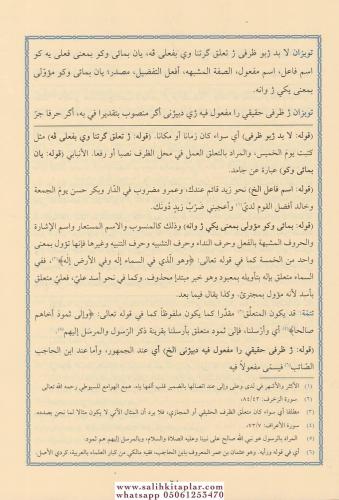 تويزان لا بد ژبو ظرفى ژ تعلق گرتنا وي بفعلى ڤه، يان بمائى وكو بمعنى فعلى يه كو
اسم فاعل، اسم مفعول، الصفة المشبهه، أفعل التفضيل، مصدر؛ يان بمائى وكو مؤوّلى
بمعنى يكي ژ وانه.
تويزان ژ ظرفى حقيقي را مفعول فيه ژي دبيژنى أگر منصوب بتقديرا في به، أگر حرفا جرّ
(قوله: لا بد ژبو ظرفى) أي سواء كان زمانا أو مكانا. (قوله: ژ تعلق گرتنا وي بفعلى ڤه) مثل
كتبت يومَ الخميس، والمراد بالتعلق العمل في محل الظرف نصبا أو رفعا. الألباني (قوله: يان
بمائى وكو) عبارة عن جامد.
(قوله: اسم فاعل الخ) نحو زيد قائم عندك، وعمرو مضروب في الدار وبكر حسن يوم الجمعة
وخالد أفضل القوم لديّ(١) وأعجبني ضَرْبُ زيدٍ دُونَك.
(قوله: بمائى وكو مؤولى بمعنى يكي ژ وانه) وذلك كالمنسوب والاسم المستعار واسم الإشارة
والحروف المشبهة بالفعل وحرف النداء وحرف التشبيه وحرف التنبيه وغيرها فإنها تؤول بمعنى
واحد من الخمسة كما في قوله تعالى: ﴿وهو الّذي في السماء إله وفي الأرض إله﴾(٢)، ففي
السماء متعلق بإله بتأويله بمعبود وهو خبر مبتدإ محذوف، وكما في نحو أسد عليّ، فعليّ متعلق
بأسد لأنه مؤول بمجترئ، وكذا يقال فيما بعد.
تتمة: قد يكون المتعلَّق(٣) مقدّرا كما يكون ملفوظا كما في قوله تعالى: ﴿وإلى ثمودَ أخاهم
صالحا﴾(٤) أي وأرسلنا، فإلى ثمود متعلق بأرسلنا بقرينة ذكر الرسول والمرسل إليهم(٥).
(قوله: ژ ظرفى حقيقي را مفعول فيه دبيژنى الخ) أي عند الجمهور، وأما عند ابن الحاجب
الصائب(٦) فيسمّى مفعولا فيه
(١) الأكثر والأشهر في لدى وعلى وإلى عند اتصالها بالضمير قلب ألفها ياء. همع الهوامع للسيوطي رحمه الله تعالى
(٢) سورة الزخرف: ٨٤/٤٣
(٣) مطلقا أي سواء كان متعلق الظرف الحقيقي أو المجازي، فلا يرد أن المثال الآتي لا يكون مثالا لما نحن بصدده.
(٤) سورة الأعراف: ٧٣/٧
(٥) المراد بالرسول هو نبي الله صالح على نبينا وعليه الصلاة والسلام، وبالمرسل إليهم هم ثمود.
(٦) أي في قوله ورأيه. وهو عثمان بن عمر المعروف بابن الحاجب، فقيه مالكي من كبار العلماء بالعربية، كردي الأصل.
www.salihkitaplar.com
whatsapp 05061253470